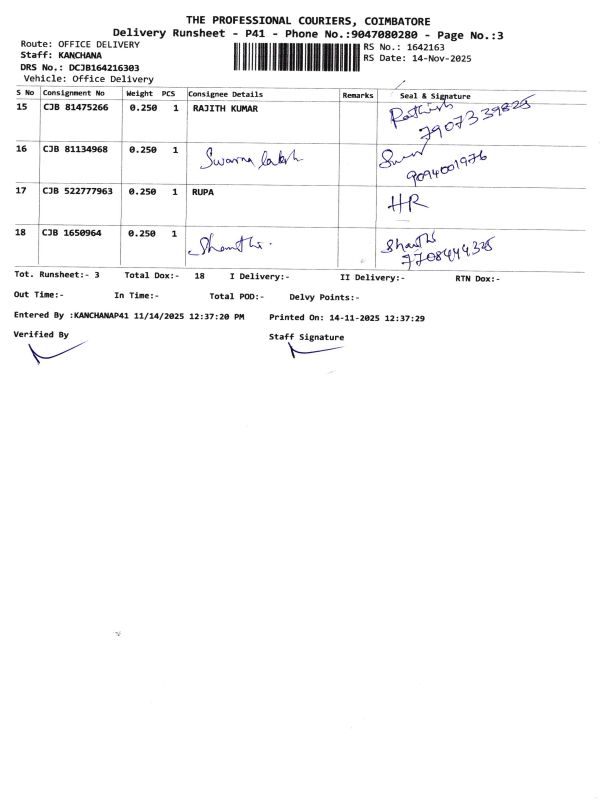 THE PROFESSIONAL COURIERS, COIMBATORE
Delivery Runsheet - P41 - Phone No.:9047080280 - Page No.:3
Route: OFFICE DELIVERY RS No.: 1642163
Staff: KANCHANA RS Date: 14-Nov-2025
DRS No.: DCJB164216303
Vehicle: Office Delivery
S No Consignment No Weight PCS Consignee Details Remarks Seal & Signature
15 CJB 81475266 0.250 1 RAJITH KUMAR
7907339825
16 CJB 81134968 0.250 1 Swarna
9094001976
17 CJB 522777963 0.250 1 RUPA HR
18 CJB 1650964 0.250 1 Shanthi. Shanthi
7708444325
Tot. Runsheet:- 3 Total Dox:- 18 I Delivery:- II Delivery:- RTN Dox:-
Out Time:- In Time:- Total POD:- Delvy Points:-
Entered By :KANCHANAP41 11/14/2025 12:37:20 PM Printed On: 14-11-2025 12:37:29
Verified By Staff Signature